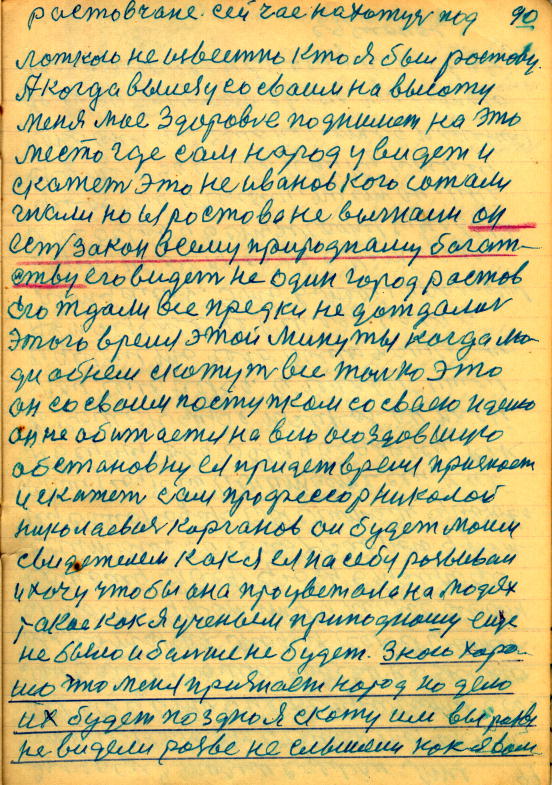 ростовчане. сей час находится под 90
ложкою не известно кто я был ростову
А когда вылезу со своим на высоту
меня мое здоровье поднимет на это
место где сам народ увидет и
скажет это не ивановкого сожали
гнали но из ростова не выгнали он
есть закон всему природному богат-
ству его видет не один город растов
его ждали все предки не дождались
этого время этой минуты когда лю-
ди об нем скажут все только это
он со своим поступком со своею идеею
он не обитается на всю создавшую
обстановку ей придет время приякает
и скажет сам профессор николай
николаевич корганов он будет моим
свидетелем как я ея на себу розвивал
и хочу чтобы она процветала на людях
такое как я ученым природному еще
не было и болше не будет. Знаю харо-
шо что меня прияжает народ но дело
их будет поздно я скажу им вы разве
не видели розве не слышали как я вам